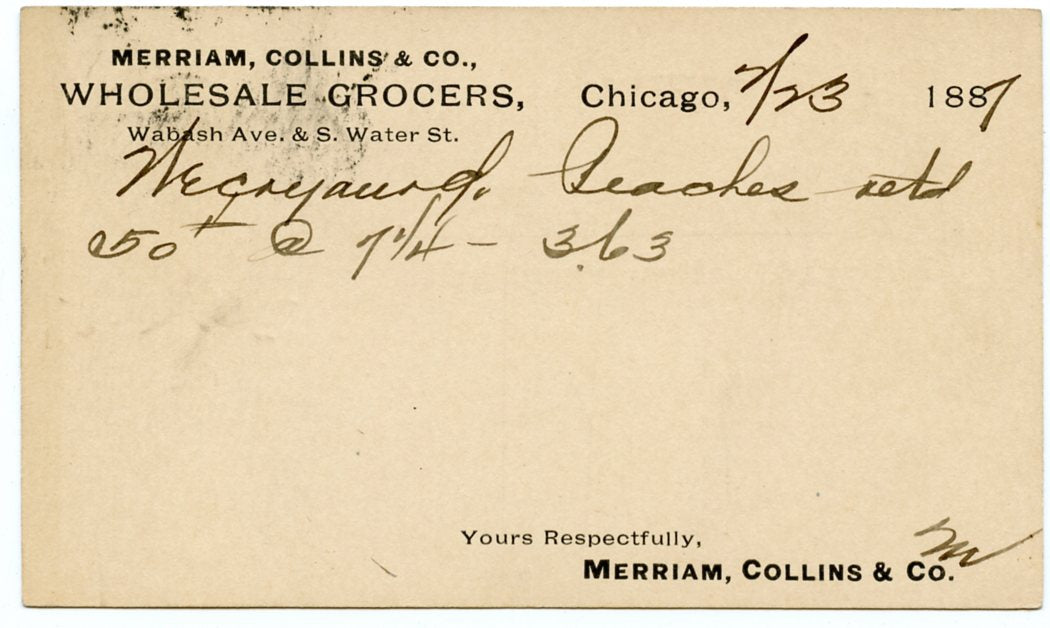 MERRIAM, COLLINS & CO.,
WHOLESALE GROCERS, Chicago, 7/23 1887
Wabash Ave. & S. Water St.
We cr your a/c Peaches retd
50# @ 7 1/4 - 3.63
Yours Respectfully,
MERRIAM, COLLINS & CO.